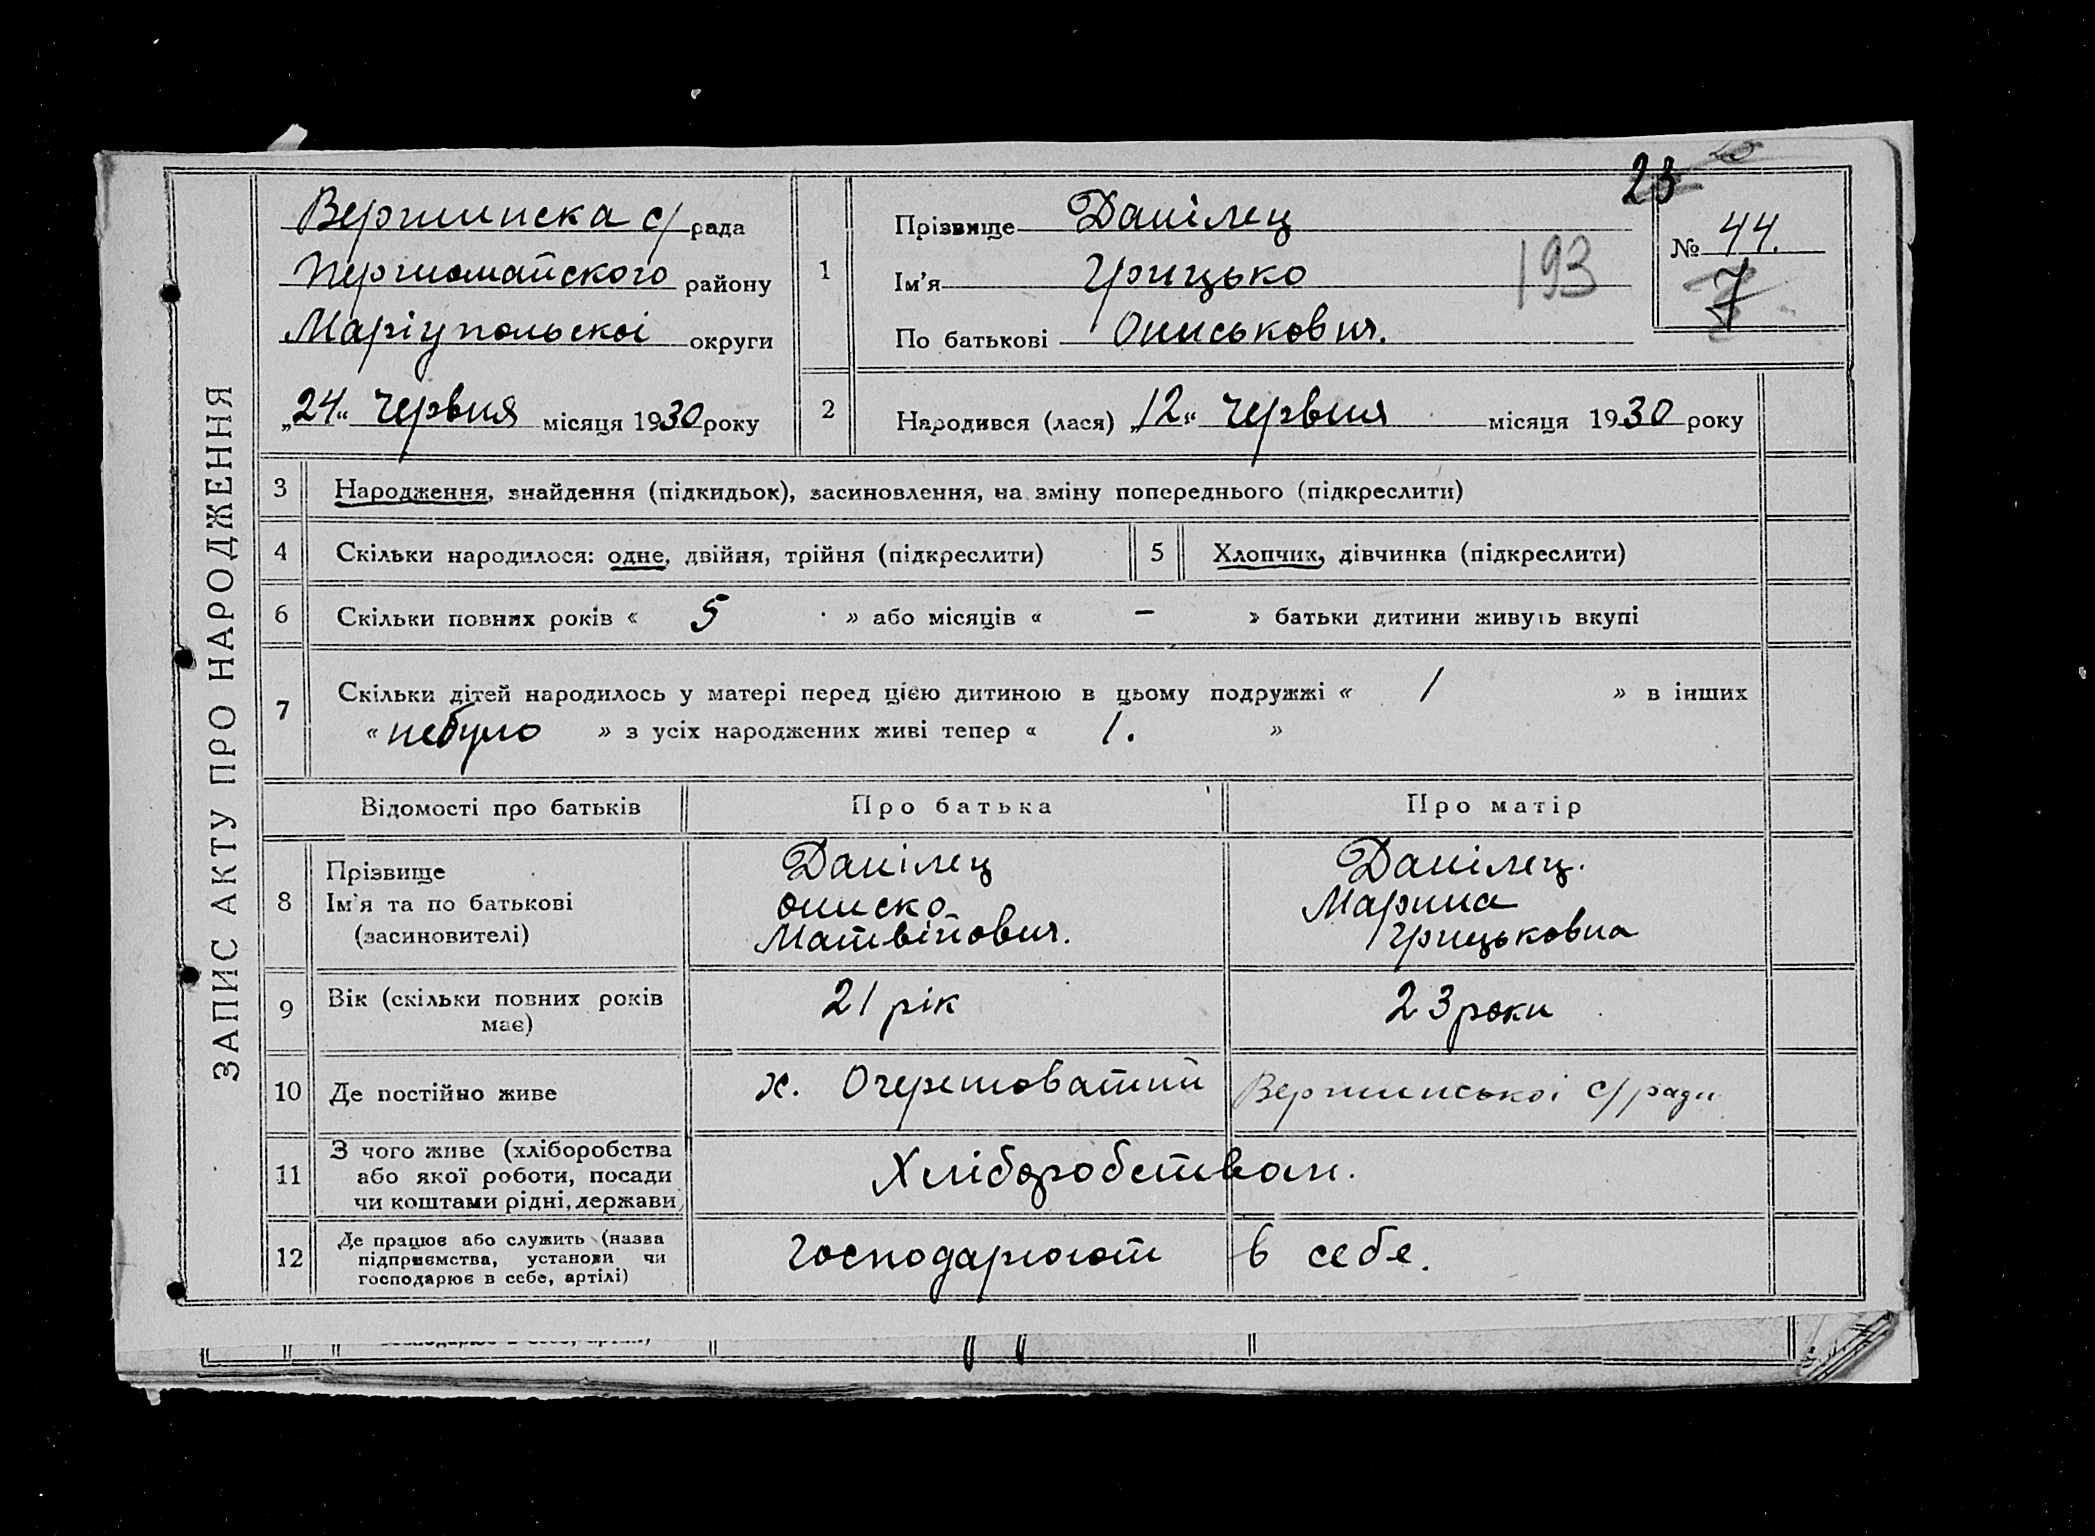 ЗАПИС АКТУ ПРО НАРОДЖЕННЯ
Вершинска с/рада
Першомайского району
Маріупольскоі округи
„24“ червня місяця 1930 року
1
Прізвище Данілец
Ім’я Грицько
По батькові Ониськович.
193
23
№ 44.
7
2 Народився (лася) „12“ червня місяця 1930 року
3 Народження, знайдення (підкидьок), засиновлення, на зміну попереднього (підкреслити)
4 Скільки народилося: одне, двійня, трійня (підкреслити) 5 Хлопчик, дівчинка (підкреслити)
6 Скільки повних років « 5 » або місяців « – » батьки дитини живуть вкупі
7 Скільки дітей народилось у матері перед цією дитиною в цьому подружжі « 1 » в інших
« небуло » з усіх народжених живі тепер « 1. »
Відомості про батьків Про батька Про матір
8 Прізвище Данілец Данілец.
Ім’я та по батькові Ониско Марина
(засиновителі) Матвійович. Грицьковна
9 Вік (скільки повних років 21 рік 23 роки
має)
10 Де постійно живе х. Очеретоватий Вершинськоі с/ради
11 З чого живе (хліборобства
або якої роботи, посади Хліборобством.
чи коштами рідні, держави)
12 Де працює або служить (назва
підприємства, установи чи господарюют в себе.
господарює в себе, артілі)